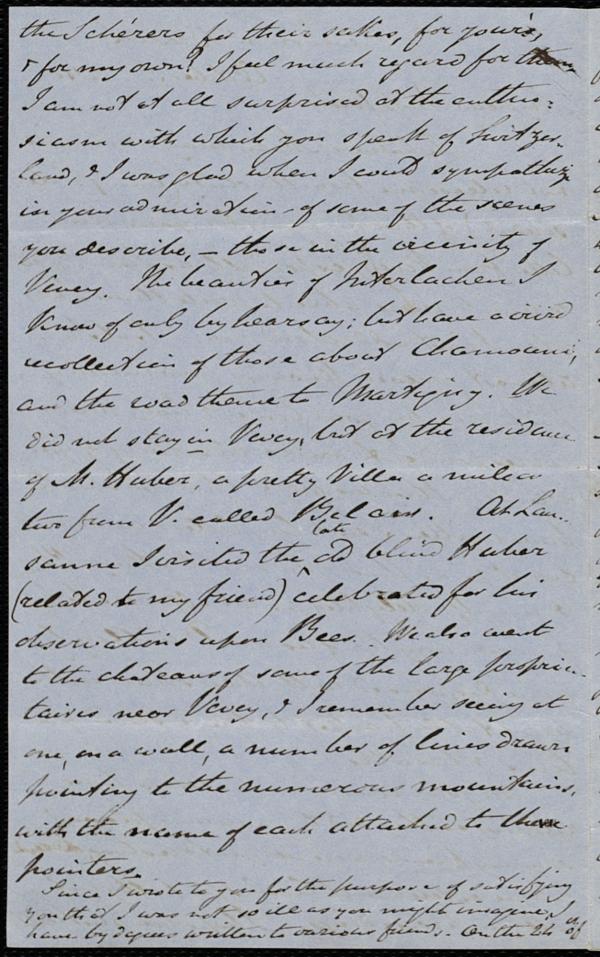 the Schérers for their sakes, for your's,
& for my own? I feel much regard for them
I am not at all surprised at the enthu=
siasm with which you speak of Switzer-
land, & I was glad when I could sympathize
in your admiration of some of the scenes
you describe, — those in the vicinity of
Vevey. The beauties of Interlachen I
know of only by hearsay; but have a vivid
recollection of those about Chamouni,
and the road thence to Martigny. We
did not stay in Vevey, but at the residence
of M. Huber, a pretty Villa a mile or
two from V. called Bel air. At Lau-
sanne I visited the late old blind Huber
(related to my friend) celebrated for his
observations upon Bees. We also went
to the chateaus of some of the large proprie-
taires near Vevey, & I remember seeing at
one, on a wall, a number of lines drawn
pointing to the numerous mountains,
with the name of each attached to the
pointers.
Since I wrote to you for the purpose of satisfying
you that I was not so ill as you might imagine, I
have by degrees written to various friends. On the 24 of